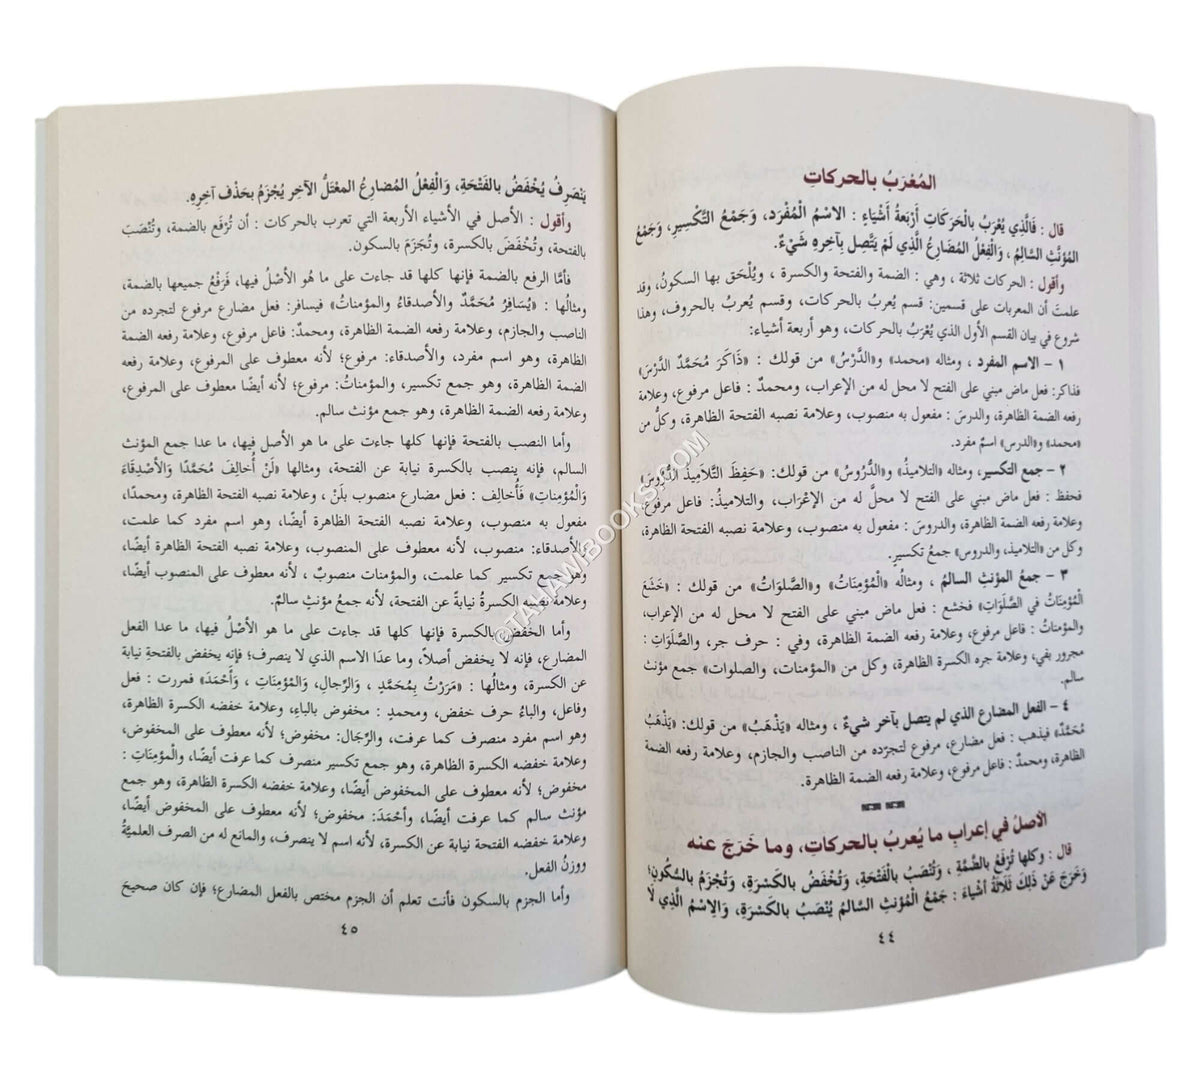 المُعْرَبُ بالحركاتِ
قال : فَالَّذِي يُعْرَبُ بالْحَرَكَاتِ أَرْبَعَةُ أَشْيَاءَ : الاسْمُ الْمُفْرَد، وَجَمْعُ التَّكْسِيرِ، وَجَمْعُ
المُؤنَّثِ السَّالِمُ ، وَالْفِعْلُ المُضَارِعُ الَّذِي لَمْ يَتَّصِل بِآخِرِهِ شَيْءٌ.
وأقول : الحركات ثلاثة ، وهي : الضمة والفتحة والكسرة ، ويُلْحَق بها السكونُ، وقد
علمتَ أن المعربات على قسمين: قسم يُعربُ بالحركات، وقسم يُعربُ بالحروف، وهذا
شروع في بيان القسم الأول الذي يُعْرَبُ بالحركات، وهو أربعة أشياء:
١ – الاسم المفرد ، ومثاله «محمد» و«الدَّرْسُ» من قولك : «ذَاكَرَ مُحَمَّدٌ الدَّرْسَ»
فذاكر: فعل ماض مبني على الفتح لا محل له من الإعراب، ومحمدٌ : فاعل مرفوع، وعلامة
رفعه الضمة الظاهرة، والدرسَ : مفعول به منصوب، وعلامة نصبه الفتحة الظاهرة، وكلٌّ من
«محمد» و«الدرس» اسمٌ مفرد.
٢ – جمع التكسير، ومثاله «التلاميذُ» و«الدُّرُوسُ» من قولك: «حَفِظَ التَّلَامِيذُ الدُّرُوسَ»
فحفظ : فعل ماض مبني على الفتح لا محلَّ له من الإعْرَاب، والتلاميذُ: فاعل مرفوع،
وعلامة رفعه الضمة الظاهرة، والدروسَ : مفعول به منصوب، وعلامة نصبه الفتحة الظاهرة،
وكل من «التلاميذ، والدروس» جمعُ تكسيرٍ.
٣ – جمعُ المؤنثِ السالمُ ، ومثالُه «الْمُؤمِنَاتُ» و«الصَّلوَاتُ» من قولك : «خَشَعَ
الْمُؤمِنَاتُ في الصَّلَوَاتِ» فخشع : فعل ماض مبني على الفتح لا محل له من الإعراب،
والمؤمناتُ : فاعل مرفوع، وعلامة رفعه الضمة الظاهرة، وفي : حرف جر، والصَّلَوَاتِ :
مجرور بفي، وعلامة جره الكسرة الظاهرة، وكل من «المؤمنات، والصلوات» جمع مؤنث
سالم.
٤ – الفعل المضارع الذي لم يتصل بآخر شيءٌ ، ومثاله «يَذْهَبُ» من قولك: «يَذْهَبُ
مُحَمَّدٌ» فيذهب : فعل مضارع، مرفوع لتجرّده من الناصب والجازم، وعلامة رفعه الضمة
الظاهرة، ومحمدٌ : فاعل مرفوع، وعلامة رفعه الضمة الظاهرة.
الأصلُ في إعرابِ ما يُعربُ بالحركاتِ، وما خَرَجَ عنه
قال : وكلها تُرْفَعُ بِالضَّمَّةِ ، وَتُنْصَبُ بِالْفَتْحَةِ، وَتُخْفَضُ بِالكَسْرَةِ، وَتُجْزَمُ بِالسُّكُونِ؛
وَخَرَجَ عَنْ ذَلِكَ ثَلَاثَةُ أَشْيَاءَ : جَمْعُ الْمُؤنَّثِ السَّالمُ يُنْصَبُ بِالكَسْرَةِ، وَالِاسْمُ الَّذِي لَا
٤٤
يَنْصَرِفُ يُخْفَضُ بالفَتْحَةِ، وَالْفِعْلُ المُضارِعُ المعْتَلُّ الآخِر يُجْزَمُ بحَذْف آخِرِهِ.
وأقول : الأصل في الأشياء الأربعة التي تعرب بالحركات : أن تُرْفَع بالضمة، وتُنْصَبَ
بالفتحة، وتُخْفَضَ بالكسرة، وتُجْزَمَ بالسكون.
فأمَّا الرفع بالضمة فإنها كلها قد جاءت على ما هُو الأصْلُ فيها، فَرَفْعُ جميعها بالضمة،
ومثالُها : «يُسَافِرُ مُحَمَّدٌ والأصدقاءُ والمؤمناتُ» فيسافر: فعل مضارع مرفوع لتجرده من
الناصب والجازم، وعلامة رفعه الضمة الظاهرة، ومحمدٌ: فاعل مرفوع، وعلامة رفعه الضمة
الظاهرة، وهو اسم مفرد، والأصدقاء: مرفوع؛ لأنه معطوف على المرفوع، وعلامة رفعه
الضمة الظاهرة، وهو جمع تكسير، والمؤمناتُ: مرفوع؛ لأنه أيضًا معطوف على المرفوع،
وعلامة رفعه الضمة الظاهرة، وهو جمع مؤنث سالم.
وأما النصب بالفتحة فإنها كلها جاءت على ما هو الأصل فيها، ما عدا جمع المؤنث
السالم، فإنه ينصب بالكسرة نيابة عن الفتحة، ومثالها «لَنْ أُخالِفَ مُحَمَّدًا وَالأصْدِقَاءَ
وَالْمُؤمِنَاتِ» فأُخالِف : فعل مضارع منصوب بلَنْ ، وعلامة نصبه الفتحة الظاهرة، ومحمدًا،
مفعول به منصوب، وعلامة نصبه الفتحة الظاهرة أيضًا، وهو اسم مفرد كما علمت،
والأصدقاءَ: منصوب، لأنه معطوف على المنصوب، وعلامة نصبه الفتحة الظاهرة أيضًا،
وهو جمع تكسير كما علمت، والمؤمنات منصوبٌ ، لأنه معطوف على المنصوب أيضًا،
وعلامة نصبه الكسرةُ نيابةً عن الفتحة، لأنه جمعُ مؤنثٍ سالمٌ.
وأما الخفض بالكسرة فإنها كلها قد جاءت على ما هو الأصْلُ فيها، ما عدا الفعل
المضارع، فإنه لا يخفض أصلاً، وما عدَا الاسم الذي لا ينصرف؛ فإنه يخفض بالفتحةِ نيابة
عن الكسرة، ومثالُها : «مَرَرْتُ بِمُحَمَّدٍ ، وَالرِّجالِ، وَالمُؤمِنَاتِ ، وَأَحْمَدَ» فمررت : فعل
وفاعل، والباءُ حرف خفض، ومحمدٍ : مخفوض بالباءِ، وعلامة خفضه الكسرة الظاهرة،
وهو اسم مفرد منصرف كما عرفت، والرِّجَال: مخفوض؛ لأنه معطوف على المخفوض،
وعلامة خفضه الكسرة الظاهرة، وهو جمع تكسير منصرف كما عرفت أيضًا، والْمؤمِنَاتِ :
مخفوض؛ لأنه معطوف على المخفوض أيضًا، وعلامة خفضه الكسرة الظاهرة، وهو جمع
مؤنث سالم كما عرفت أيضًا، وأحْمَدَ: مخفوض؛ لأنه معطوف على المخفوض أيضًا،
وعلامة خفضه الفتحة نيابة عن الكسرة، لأنه اسم لا ينصرف، والمانع له من الصرف العلميَّةُ
ووزنُ الفعل.
وأما الجزم بالسكون فأنت تعلم أن الجزم مختص بالفعل المضارع؛ فإن كان صحيحَ
٤٥
©TAHAWIBOOKS.COM